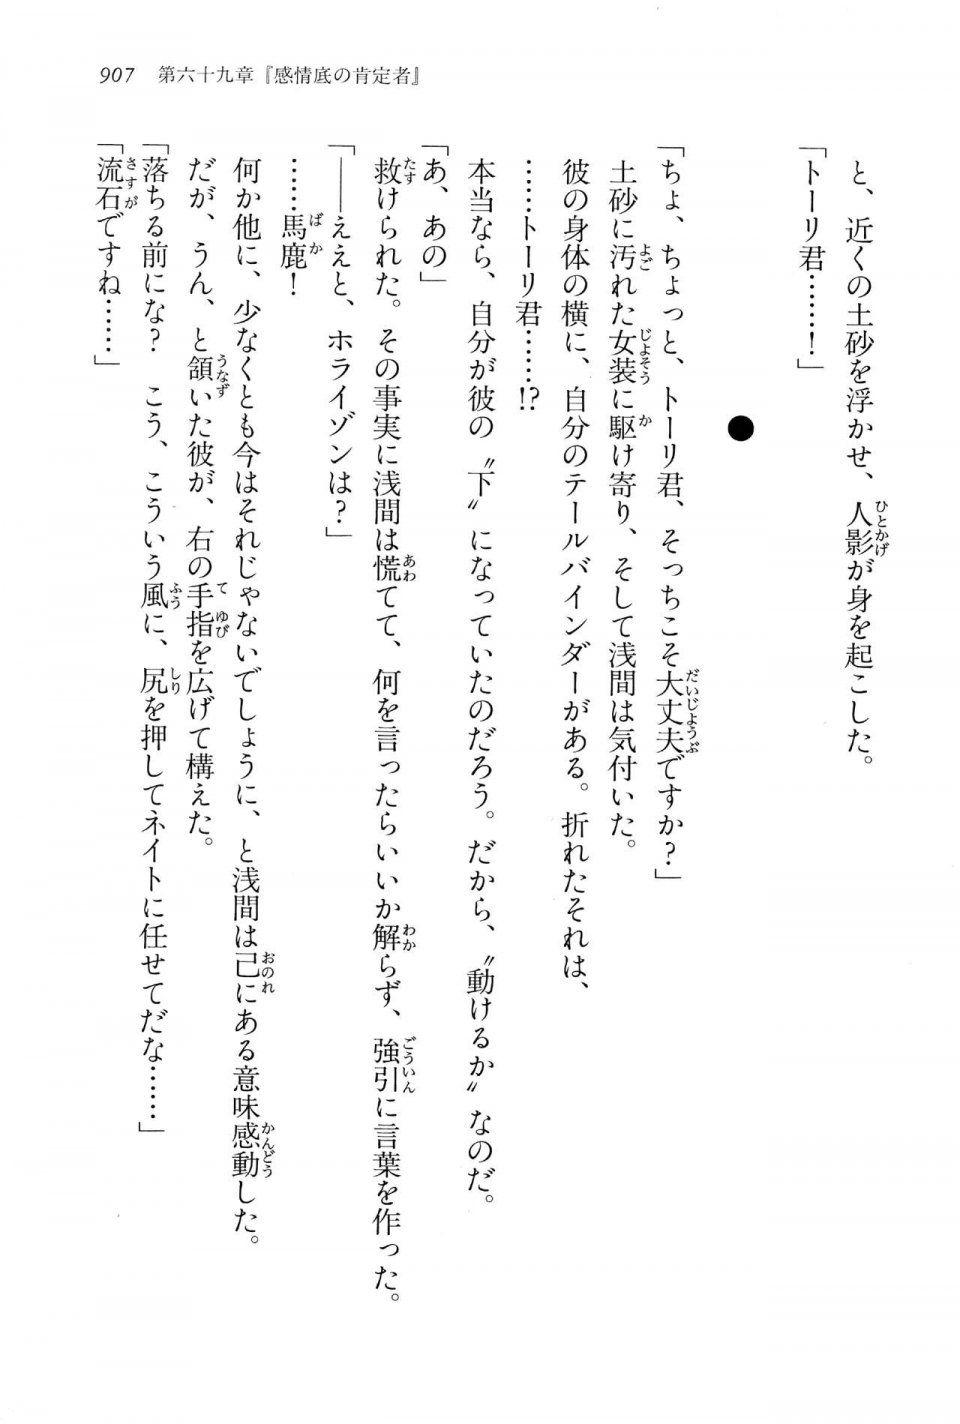 907　第六十九章『感情底の肯定者』
と、近くの土砂を浮かせ、人影が身を起こした。
「トーリ君……！」
●
「ちょ、ちょっと、トーリ君、そっちこそ大丈夫ですか？」
土砂に汚れた女装に駆け寄り、そして浅間は気付いた。
彼の身体の横に、自分のテールバインダーがある。折れたそれは、
……トーリ君……!?
本当なら、自分が彼の〝下〟になっていたのだろう。だから、〝動けるか〟なのだ。
「あ、あの」
救けられた。その事実に浅間は慌てて、何を言ったらいいか解らず、強引に言葉を作った。
「――ええと、ホライゾンは？」
……馬鹿！
何か他に、少なくとも今はそれじゃないでしょうに、と浅間は己にある意味感動した。
だが、うん、と頷いた彼が、右の手指を広げて構えた。
「落ちる前にな？　こう、こういう風に、尻を押してネイトに任せてだな……」
「流石ですね……」